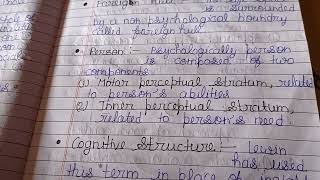 Foreign
is surrounded
by a non psychological boundry
called foreign hull
• Person :- Psychologically person
is composed of two
components.
(1) Motor perceptual stratum, related
to person's abilities
(2) Inner perceptual stratum,
related to person's need.
• Cognitive Structure :- Lewin
has used
this term in place of